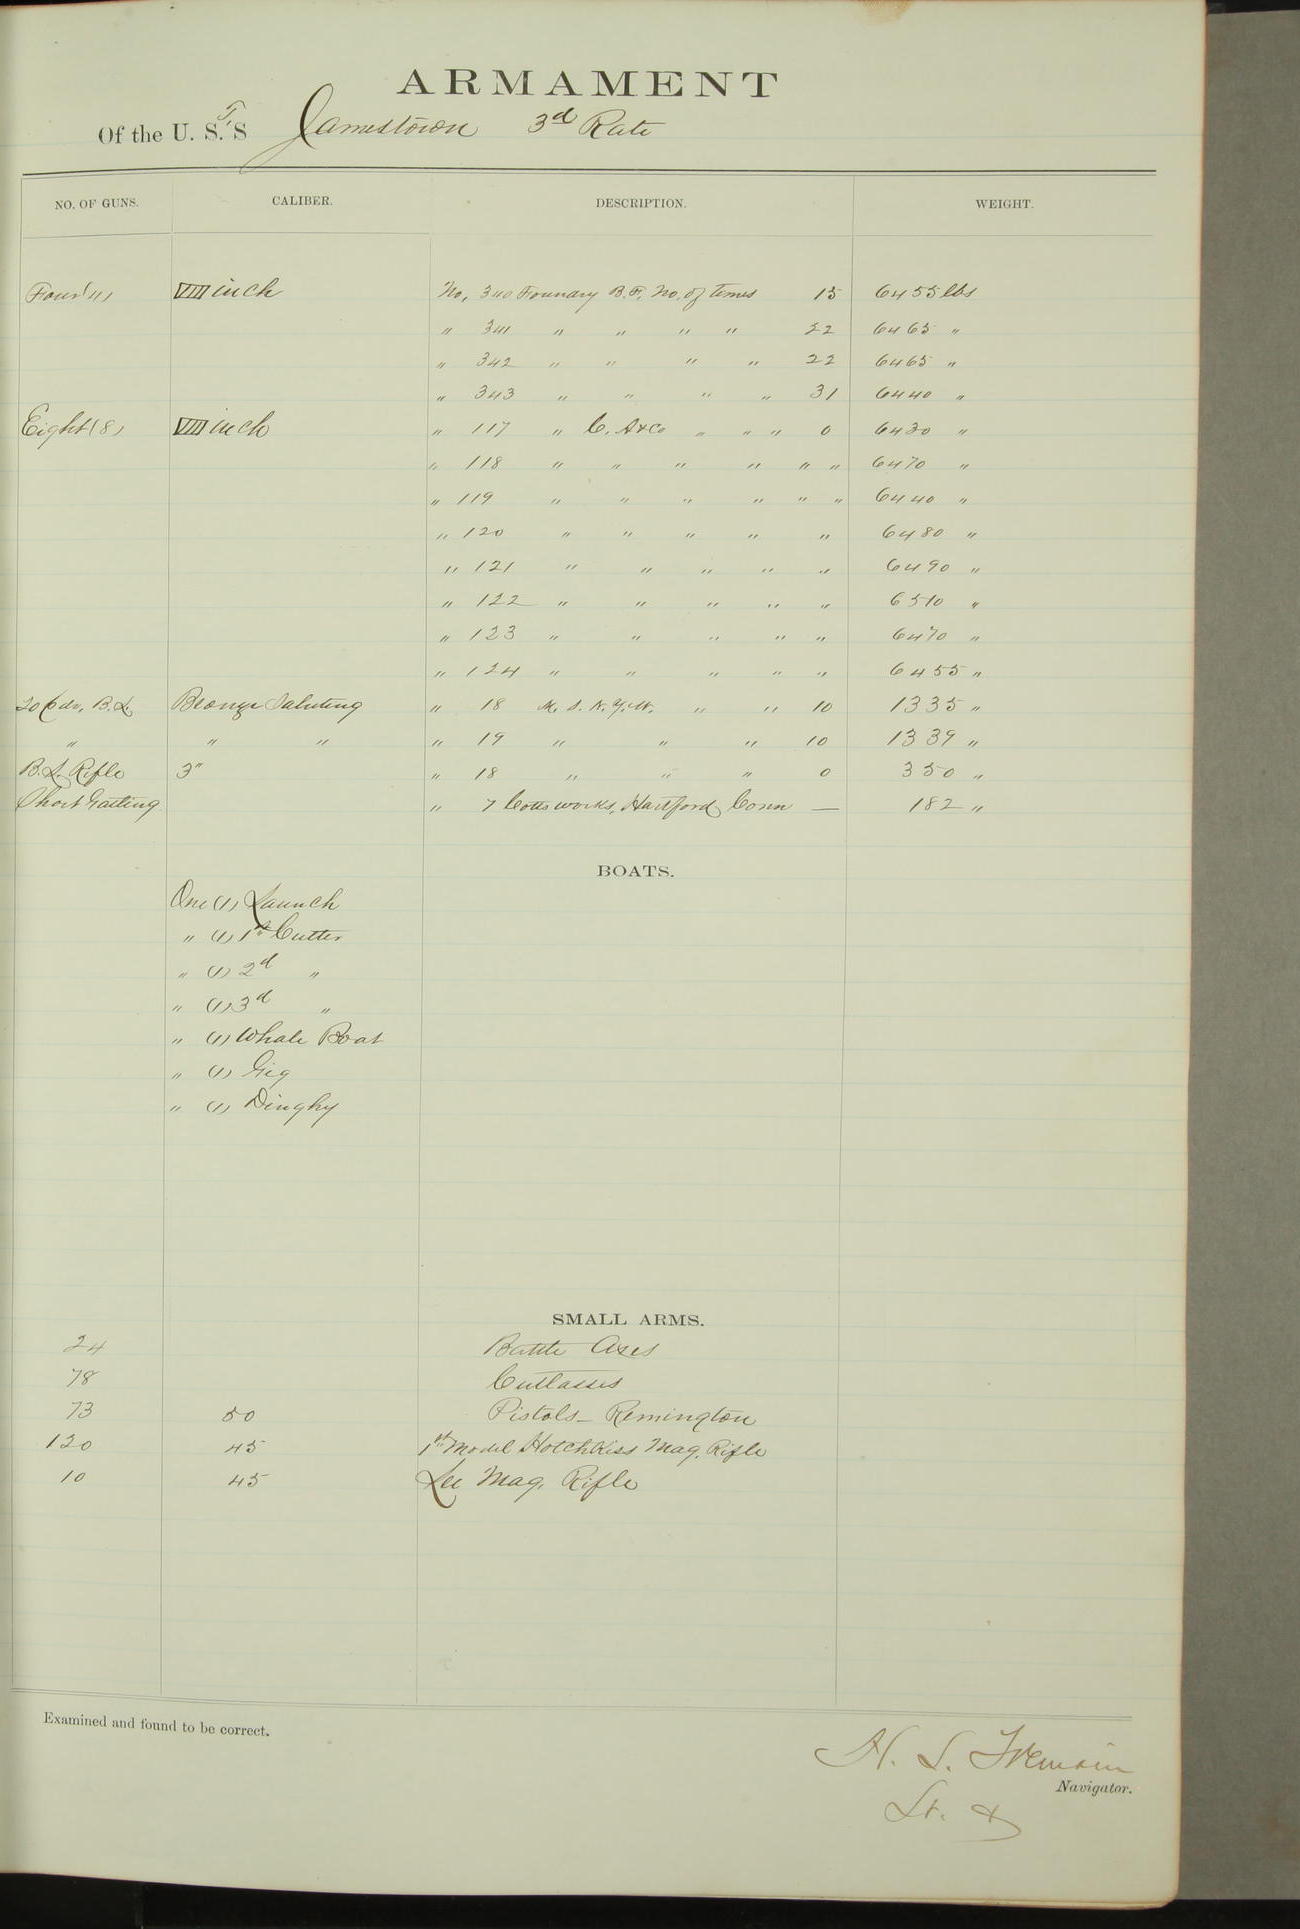 ARMAMENT
Of the U. S. T. S Jamestown 3d Rate
NO. OF GUNS. CALIBER. DESCRIPTION. WEIGHT.
Four VIII inch No, 340 Foundry B.F. No. of times 15 6455 lbs
" 341 " " " " 22 6465 "
" 342 " " " " 22 6465 "
" 343 " " " " 31 6440 "
Eight (8) VIII inch " 117 " C. A & Co " " " 0 6430 "
" 118 " " " " " " 6470 "
" 119 " " " " " " 6440 "
" 120 " " " " " 6480 "
" 121 " " " " " 6490 "
" 122 " " " " " 6510 "
" 123 " " " " " 6470 "
" 124 " " " " " 6455 "
20 pdr, B.L. Bronze Saluting " 18 N.Y.W. " " 10 1335 "
" " " " 19 " " " 10 1339 "
B.L. Rifle 3" " 18 " " " 0 350 "
Short Gatling " 7 Colts works, Hartford, Conn — 182 "
BOATS.
One (1) Launch
" (1) 1st Cutter
" (1) 2d "
" (1) 3d "
" (1) Whale Boat
" (1) Gig
" (1) Dinghy
SMALL ARMS.
24 Battle Axes
78 Cutlasses
73 50 Pistols – Remington
120 45 1st Model Hotchkiss Mag. Rifle
10 45 Lee Mag. Rifle
Examined and found to be correct.
H.
Navigator.
Lt. &